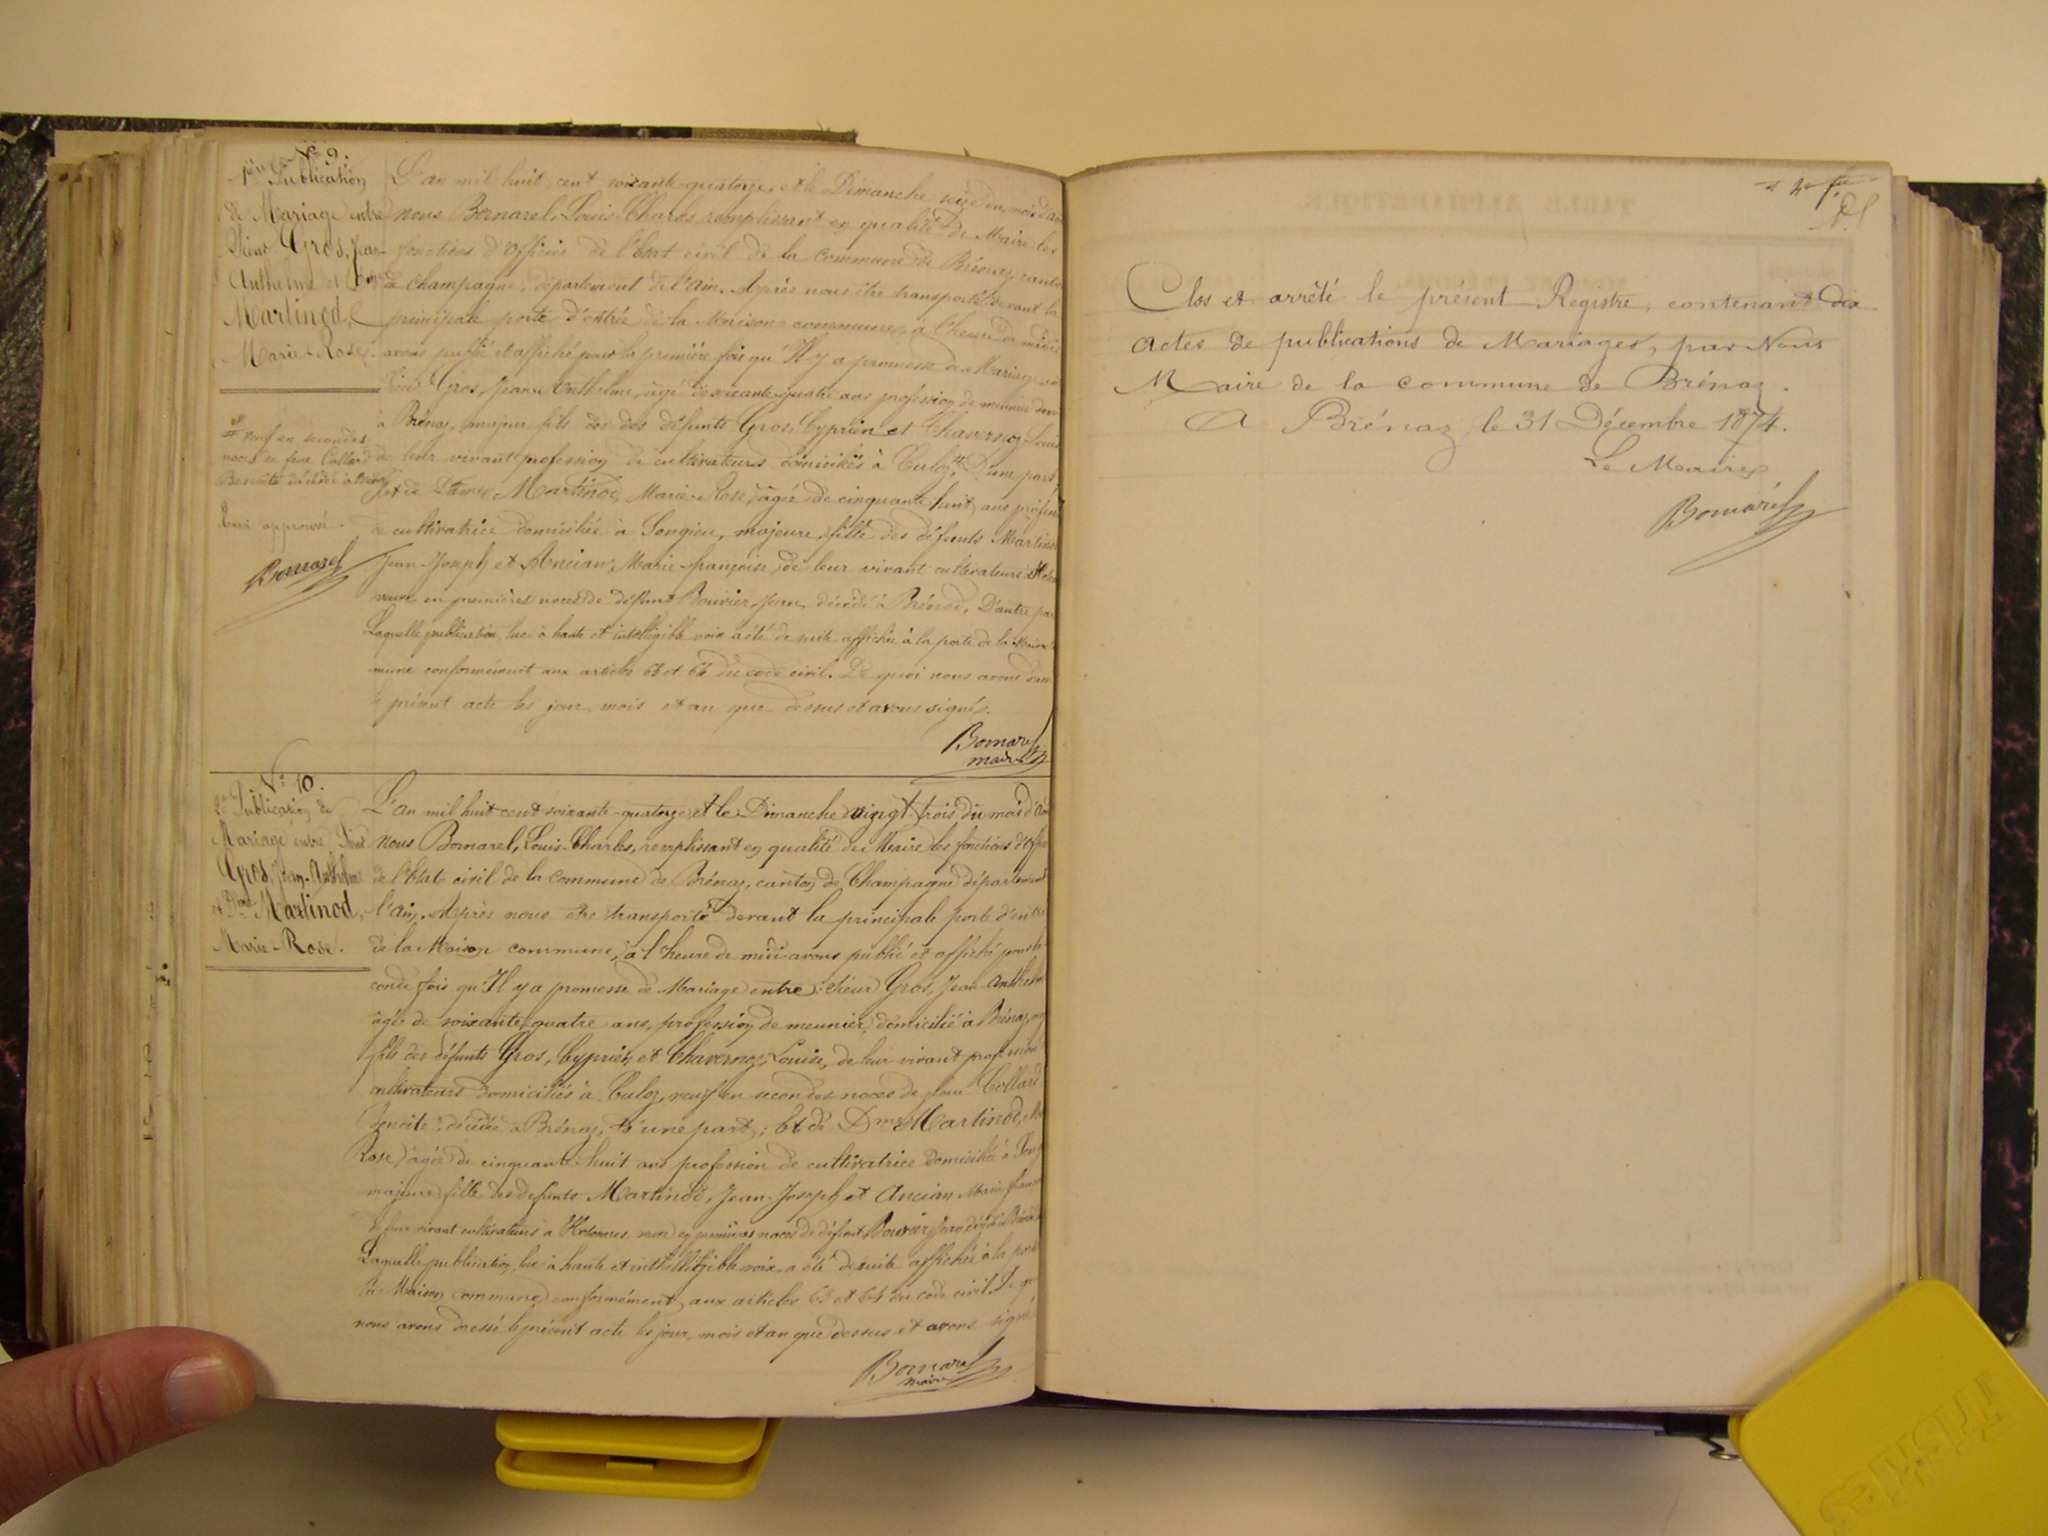 N° 9.
1ère Publication
de Mariage entre
Sieur Gros, Jean
Anthelme et
Martinod,
Marie-Rose.
L'an mil huit cent soixante-quatorze, et le Dimanche seize du mois d'
nous Bomarel, Louis-Charles, remplissant en qualité de Maire les
fonctions d'officier de l'Etat civil de la commune de Brénaz, canton
de Champagne, département de l'Ain. Après nous être transporté devant la
principale porte d'entrée de la Maison commune, à l'heure de midi
avons publié et affiché pour la première fois qu'Il y a promesse de Mariage
Sieur Gros, Jean-Anthelme, âgé de soixante-quatre ans profession de meunier
à Brénaz, majeur fils des défunts Gros, Cyprien et Chavernoz, Louise
de leur vivant profession de cultivateurs domiciliés à Culoz, # D'une part,
et de Dame Martinod, Marie-Rose, âgée de cinquante-huit ans
de cultivatrice domiciliée à Songieu, majeure, fille des défunts Martinod
Jean-Joseph et Ancian, Marie-françoise, de leur vivant cultivateurs à
veuve en premières noces de défunt Bouvier, Jean, décédé à Brénod, D'autre
Laquelle publication, lue à haute et intelligible voix a été de suite affichée à la porte de la
mune conformément aux articles 63 et 64 du code civil. De quoi nous avons
le présent acte les jour, mois et an que dessus et avons signé.
Bomarel
maire
# veuf en secondes
noces de feue Collard
Benoîte décédée à Brénaz
Renvoi approuvé.
Bomarel
N° 10.
2e Publication de
Mariage entre Sieur
Gros, Jean-Anthelme
et Dme Martinod,
Marie-Rose.
L'an mil huit cent soixante-quatorze et le Dimanche vingt trois du mois d'
nous Bomarel, Louis-Charles, remplissant en qualité de Maire les fonctions d'
de l'Etat civil de la commune de Brénaz, canton de Champagne département
l'Ain. Après nous être transporté devant la principale porte d'entrée
de la Maison commune, à l'heure de midi avons publié et affiché pour
conde fois qu'Il y a promesse de Mariage entre : Sieur Gros, Jean-Anthelme
âgé de soixante-quatre ans, profession de meunier, domicilié à Brénaz,
fils des défunts Gros, Cyprien et Chavernoz, Louise, de leur vivant
cultivateurs domiciliés à Culoz, veuf en secondes noces de feue Collard
Benoîte décédée à Brénaz, D'une part ; Et de Dme Martinod,
Rose, âgée de cinquante-huit ans profession de cultivatrice domiciliée à
majeure, fille des défunts Martinod, Jean-Joseph et Ancian Marie
de leur vivant cultivateurs à Hotonnes, veuve en premières noces de défunt Bouvier, Jean décédé
Laquelle publication, lue à haute et intelligible voix, a été de suite affichée à la porte
Maison commune conformément aux articles 63 et 64 du code civil. De
nous avons dressé le présent acte les jour, mois et an que dessus et avons signé
Bomarel
maire
Clos et arrêté le présent Registre, contenant dix
actes de publications de Mariages, par Nous
Maire de la commune de Brénaz.
A Brénaz, le 31 Décembre 1874.
Le Maire
Bomarel